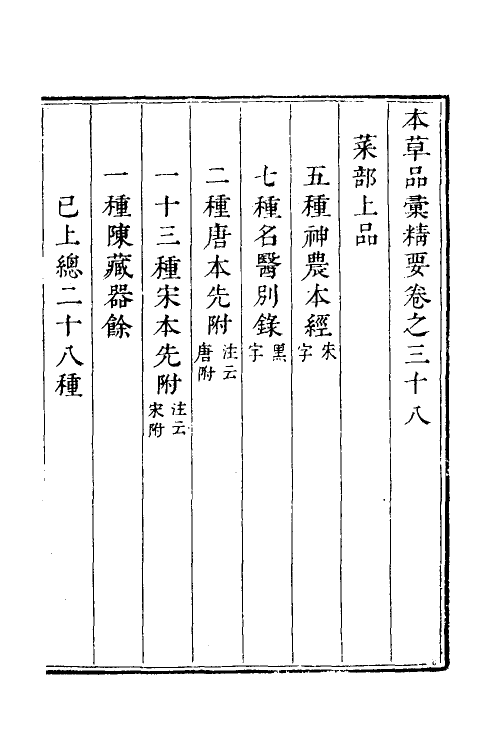 本草品彙精要卷之三十八
菜部上品
五種神農本經朱字
七種名醫別錄黑字
二種唐本先附注云唐附
一十三種宋本先附注云宋附
一種陳藏器餘
已上總二十八種